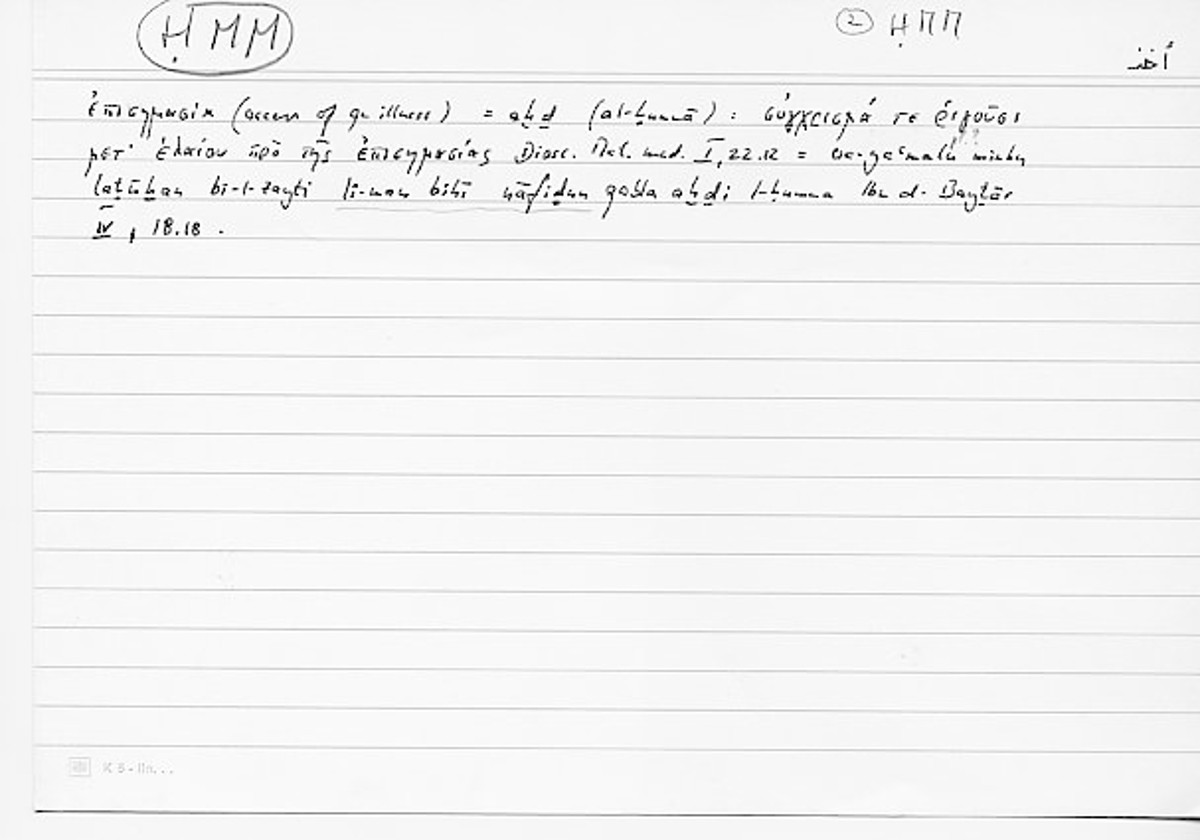 ḤMM
② ḤMM
أخذ
ἐπισημασία (access of an illness) = aḫḏ (al-ḥummā) : σύγχρισμά τε ῥιγοῦσι
μετ' ἐλαίου πρὸ τῆς ἐπισημασίας Diosc. Mat. med. I, 22.12 = minhu
laṭūḫan bi-l-zayti li-man bihī nāfiḍun qabla aḫḏi l-ḥummā Ibn al-Bayṭār
IV, 18.18 .